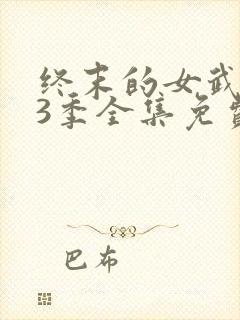 终末的女武
3季全集免费
巴布